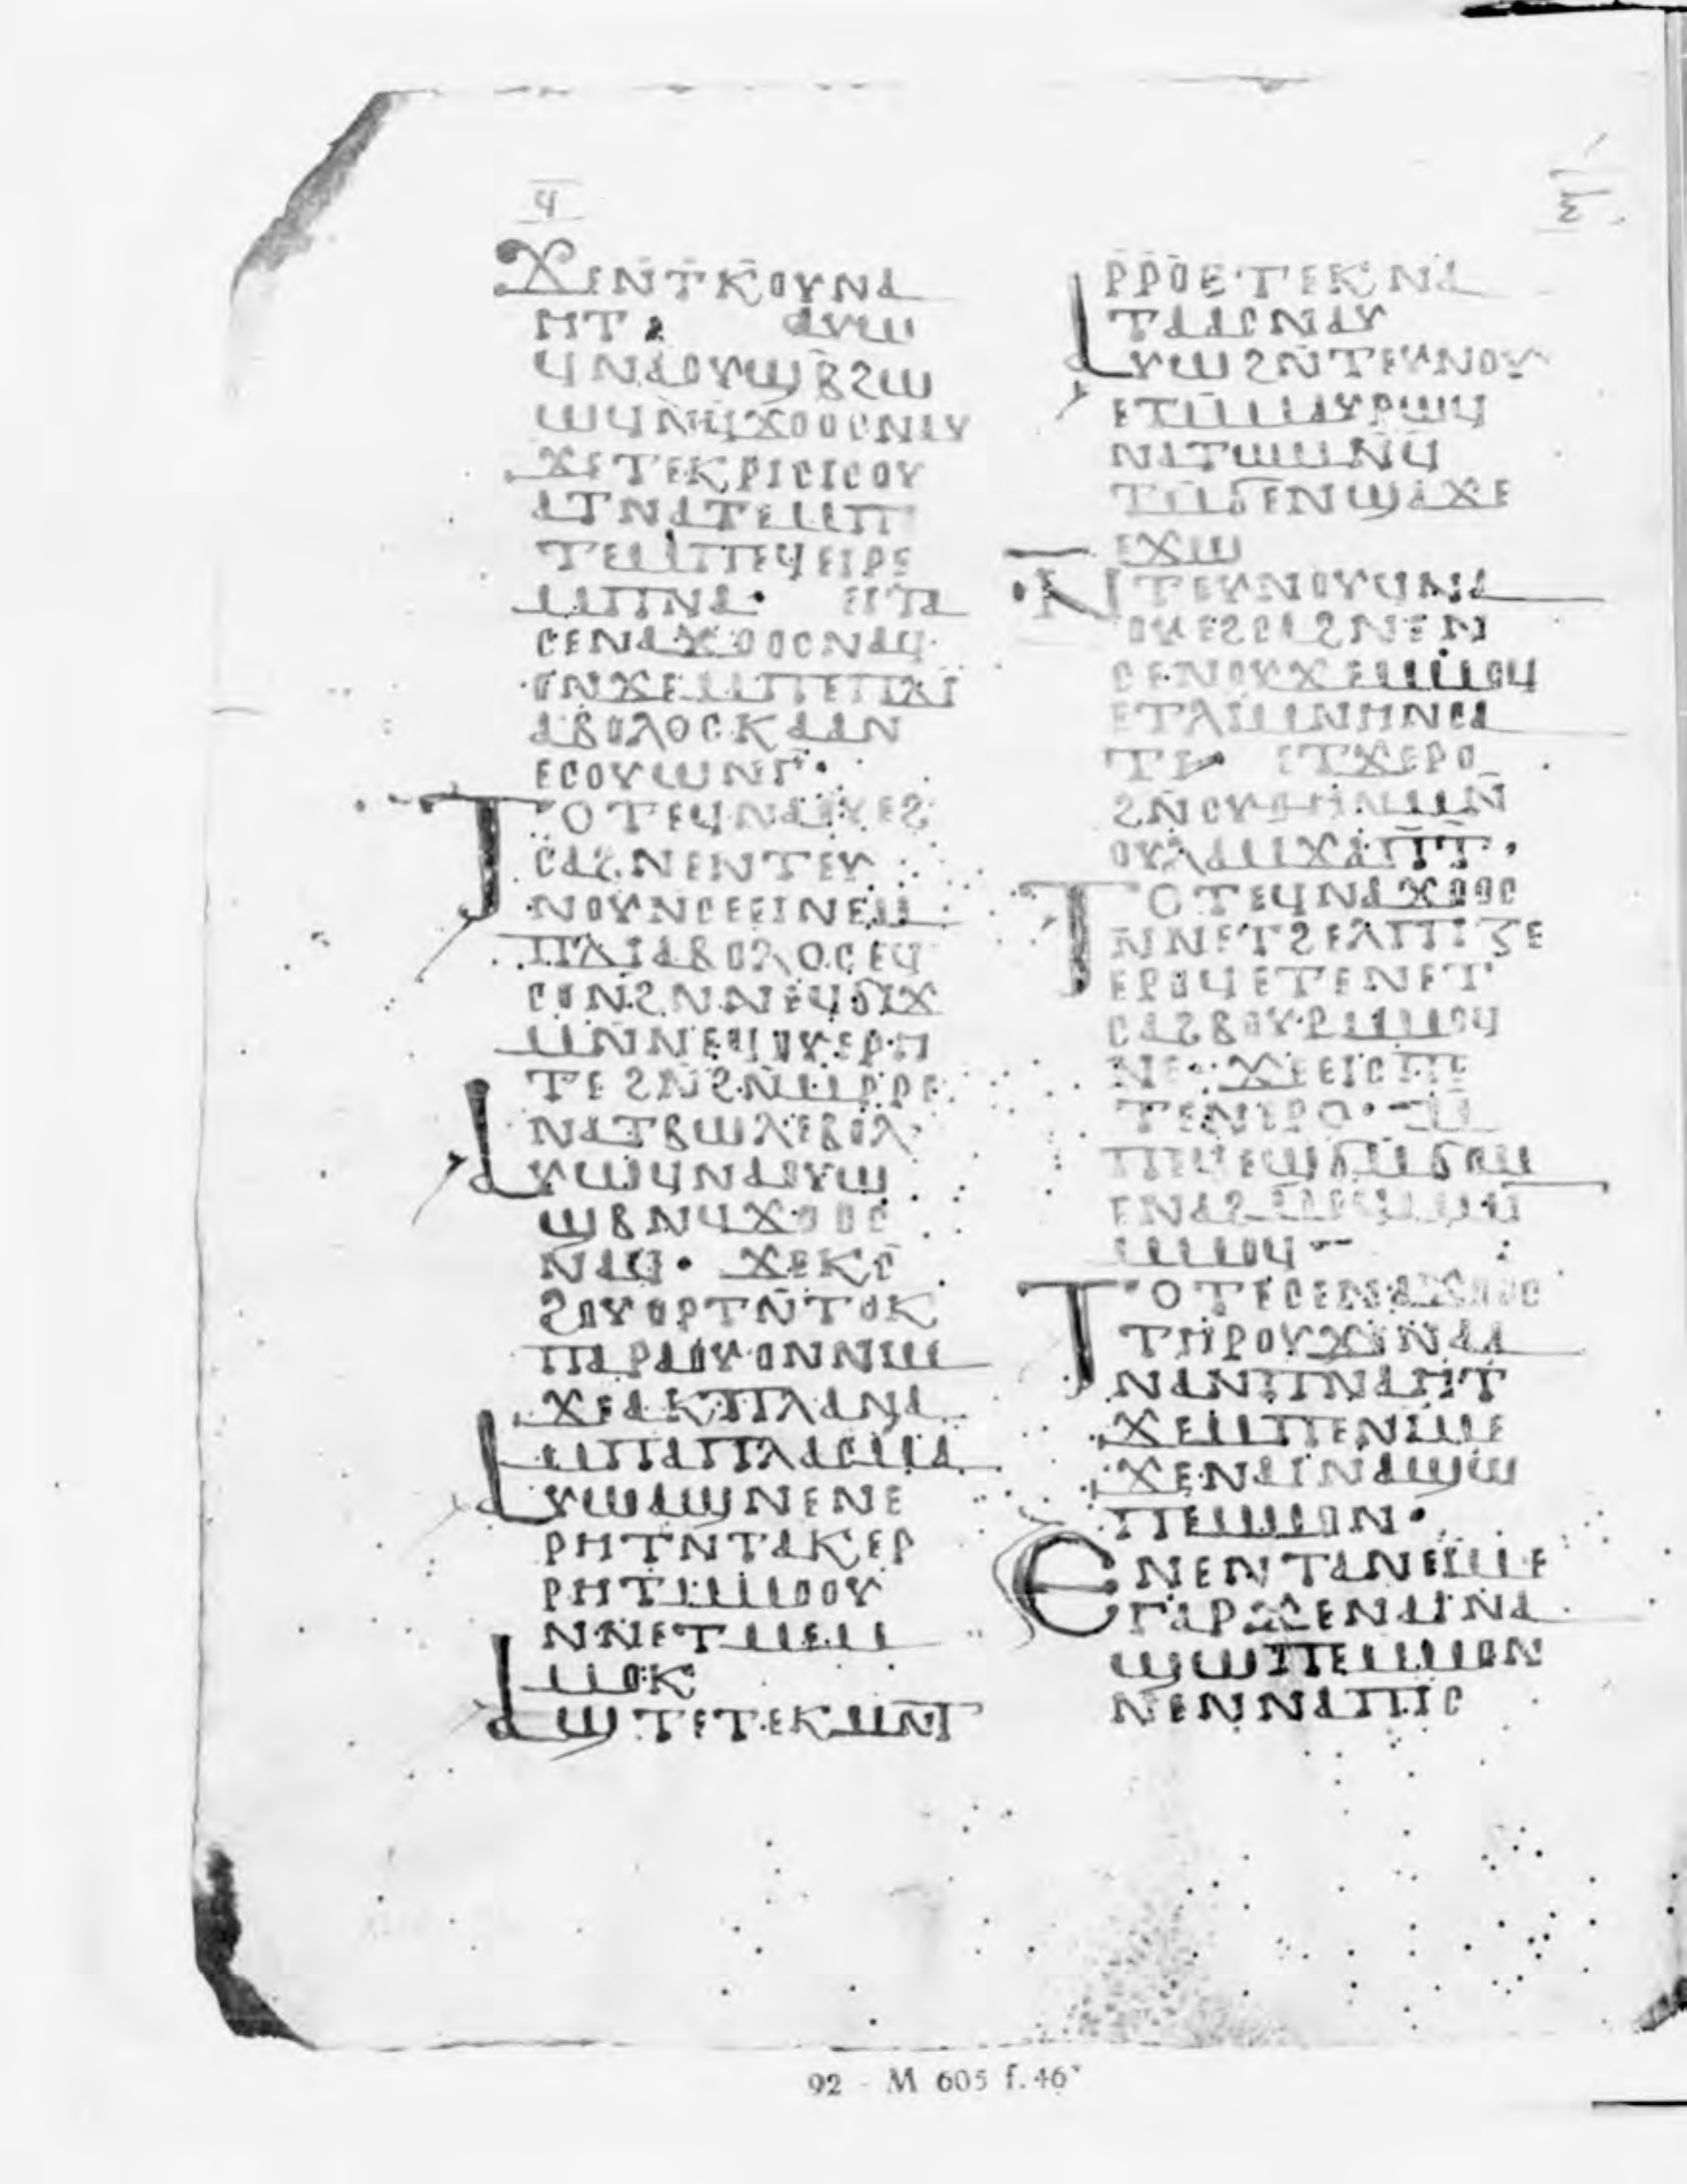 ϥ
ϫⲉⲛⲧⲕⲟⲩⲛⲁ
ⲏⲧ ⲁⲩⲱ
ϥⲛⲁⲟⲩⲱϣⲃϩⲱ
ⲱϥⲛϥϫⲟⲟⲥⲛⲁⲩ
ϫⲉⲧⲉⲕⲣⲓⲥⲓⲥⲟⲩ
ⲁⲧⲛⲁⲧⲉⲙⲡ
ⲧⲉⲙⲡⲉϥⲉⲓⲣⲉ
ⲙⲡⲛⲁ·
ⲥⲉⲛⲁϫⲟⲟⲥⲛⲁϥ
ⲟⲛϫⲉⲙⲡⲉⲡⲇⲓ
ⲁⲃⲟⲗⲟⲥⲕⲁⲁⲛ
ⲉⲥⲟⲩⲱⲛⲅ·
ⲧⲟⲧⲉϥⲛⲁⲟⲩⲉϩ
ⲥⲁϩⲛⲉⲛⲧⲉⲩ
ⲛⲟⲩⲛⲥⲉⲉⲓⲛⲉⲙ
ⲡⲇⲓⲁⲃⲟⲗⲟⲥⲉϥ
ⲥⲟⲛϩⲛⲛⲉϥϭⲓϫ
ⲙⲛⲛⲉϥⲟⲩⲉⲣⲏ
ⲧⲉϩⲛϩⲛⲙⲣⲣⲉ
ⲛⲁⲧⲃⲱⲗⲉⲃⲟⲗ
ⲁⲩⲱϥⲛⲁⲟⲩⲱ
ϣⲃⲛϥϫⲟⲟⲥ
ⲛⲁϥ· ϫⲉⲕⲥ
ϩⲟⲩⲟⲣⲧⲛⲧⲟⲕ
ⲡⲁⲣⲁⲟⲩⲟⲛⲛⲓⲙ
ϫⲉⲁⲕⲡⲗⲁⲛⲁ
ⲙⲡⲁⲡⲗⲁⲥⲙⲁ
ⲁⲩⲱⲁϣⲛⲉⲛⲉ
ⲣⲏⲧⲛⲧⲁⲕⲉⲣ
ⲣⲏⲧⲙⲙⲟⲟⲩ
ⲛⲛⲉⲧⲙⲉⲙ
ⲙⲟⲕ
ⲁϣⲧⲉⲧⲉⲕⲙⲛⲧ
ⲣⲣⲟⲉⲧⲉⲕⲛⲁ
ⲧⲁⲁⲥⲛⲁⲩ
ⲁⲩⲱϩⲛⲧⲉⲩⲛⲟⲩ
ⲉⲧⲙⲙⲁⲩⲣⲱϥ
ⲛⲁⲧⲱⲙⲛϥ
ⲧⲙϭⲉⲛϣⲁϫⲉ
ⲉϫⲱ
ⲛⲧⲉⲩⲛⲟⲩϥⲛⲁ
ⲟⲩⲉϩⲥⲁϩⲛⲉⲛ
ⲥⲉⲛⲟⲩϫⲉⲙⲙⲟϥ
ⲉⲧⲗⲓⲙⲛⲏⲛⲥⲁ
ⲧⲉ· ⲉⲧϫⲉⲣⲟ
ϩⲛⲟⲩⲑⲏⲛⲙⲛ
ⲟⲩⲗⲁⲙϫⲁⲡⲧ·
ⲧⲟⲧⲉϥⲛⲁϫⲟⲟⲥ
ⲛⲛⲉⲧϩⲉⲗⲡⲓⲍⲉ
ⲉⲣⲟϥⲉⲧⲉⲛⲉⲧ
ⲥⲁϩⲃⲟⲩⲣⲙⲙⲟϥ
ⲛⲉ· ϫⲉⲉⲓⲥⲡⲉ
ⲧⲉⲛⲉⲣⲟ·
ⲡⲉϥⲉϣϭⲙϭⲟⲙ
ⲉⲛⲁϩⲙⲉϥⲙⲙⲓⲛ
ⲙⲙⲟϥ
ⲧⲟⲧⲉⲥⲉⲛⲁϫⲟⲟⲥ
ⲧⲏⲣⲟⲩϫⲓⲛⲁⲁ
ⲛⲁⲛⲡⲛⲁⲏⲧ
ϫⲉⲙⲡⲉⲛⲓⲙⲉ
ϫⲉⲛⲁⲓⲛⲁϣⲱ
ⲡⲉⲙⲙⲟⲛ·
ⲉⲛⲉⲛⲧⲁⲛⲉⲓⲙⲉ
ⲅⲁⲣϫⲉⲛⲁⲓⲛⲁ
ϣⲱⲡⲉⲙⲙⲟⲛ
ⲛⲉⲛⲛⲁⲡⲓⲥ
92 - M 605 f. 46ᵛ